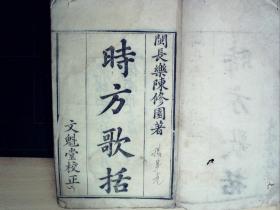 閩長樂陳修園著
時方歌括
文魁堂校正